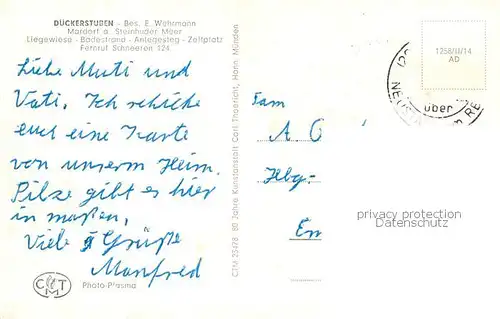 DÜCKERSTUBEN - Bes. E. Wehrmann
Mardorf a. Steinhuder Meer
Liegewiese - Badestrand - Anlegesteg - Zeltplatz
Fernruf Schneeren 124
Liebe Muti und
Vati, Ich schicke
euch eine Karte
von unserm Heim.
Pilze gibt es hier
in maßen,
Viele Grüße
Manfred
CTM
Photo-Plasma
CTM 23478 80 Jahre Kunstanstalt Carl Thoericht, Hann. Münden
Fam
A O
Hbg-
En
1258/III/14
AD
NEUSTA
über
RE
privacy protection
OldThing.de